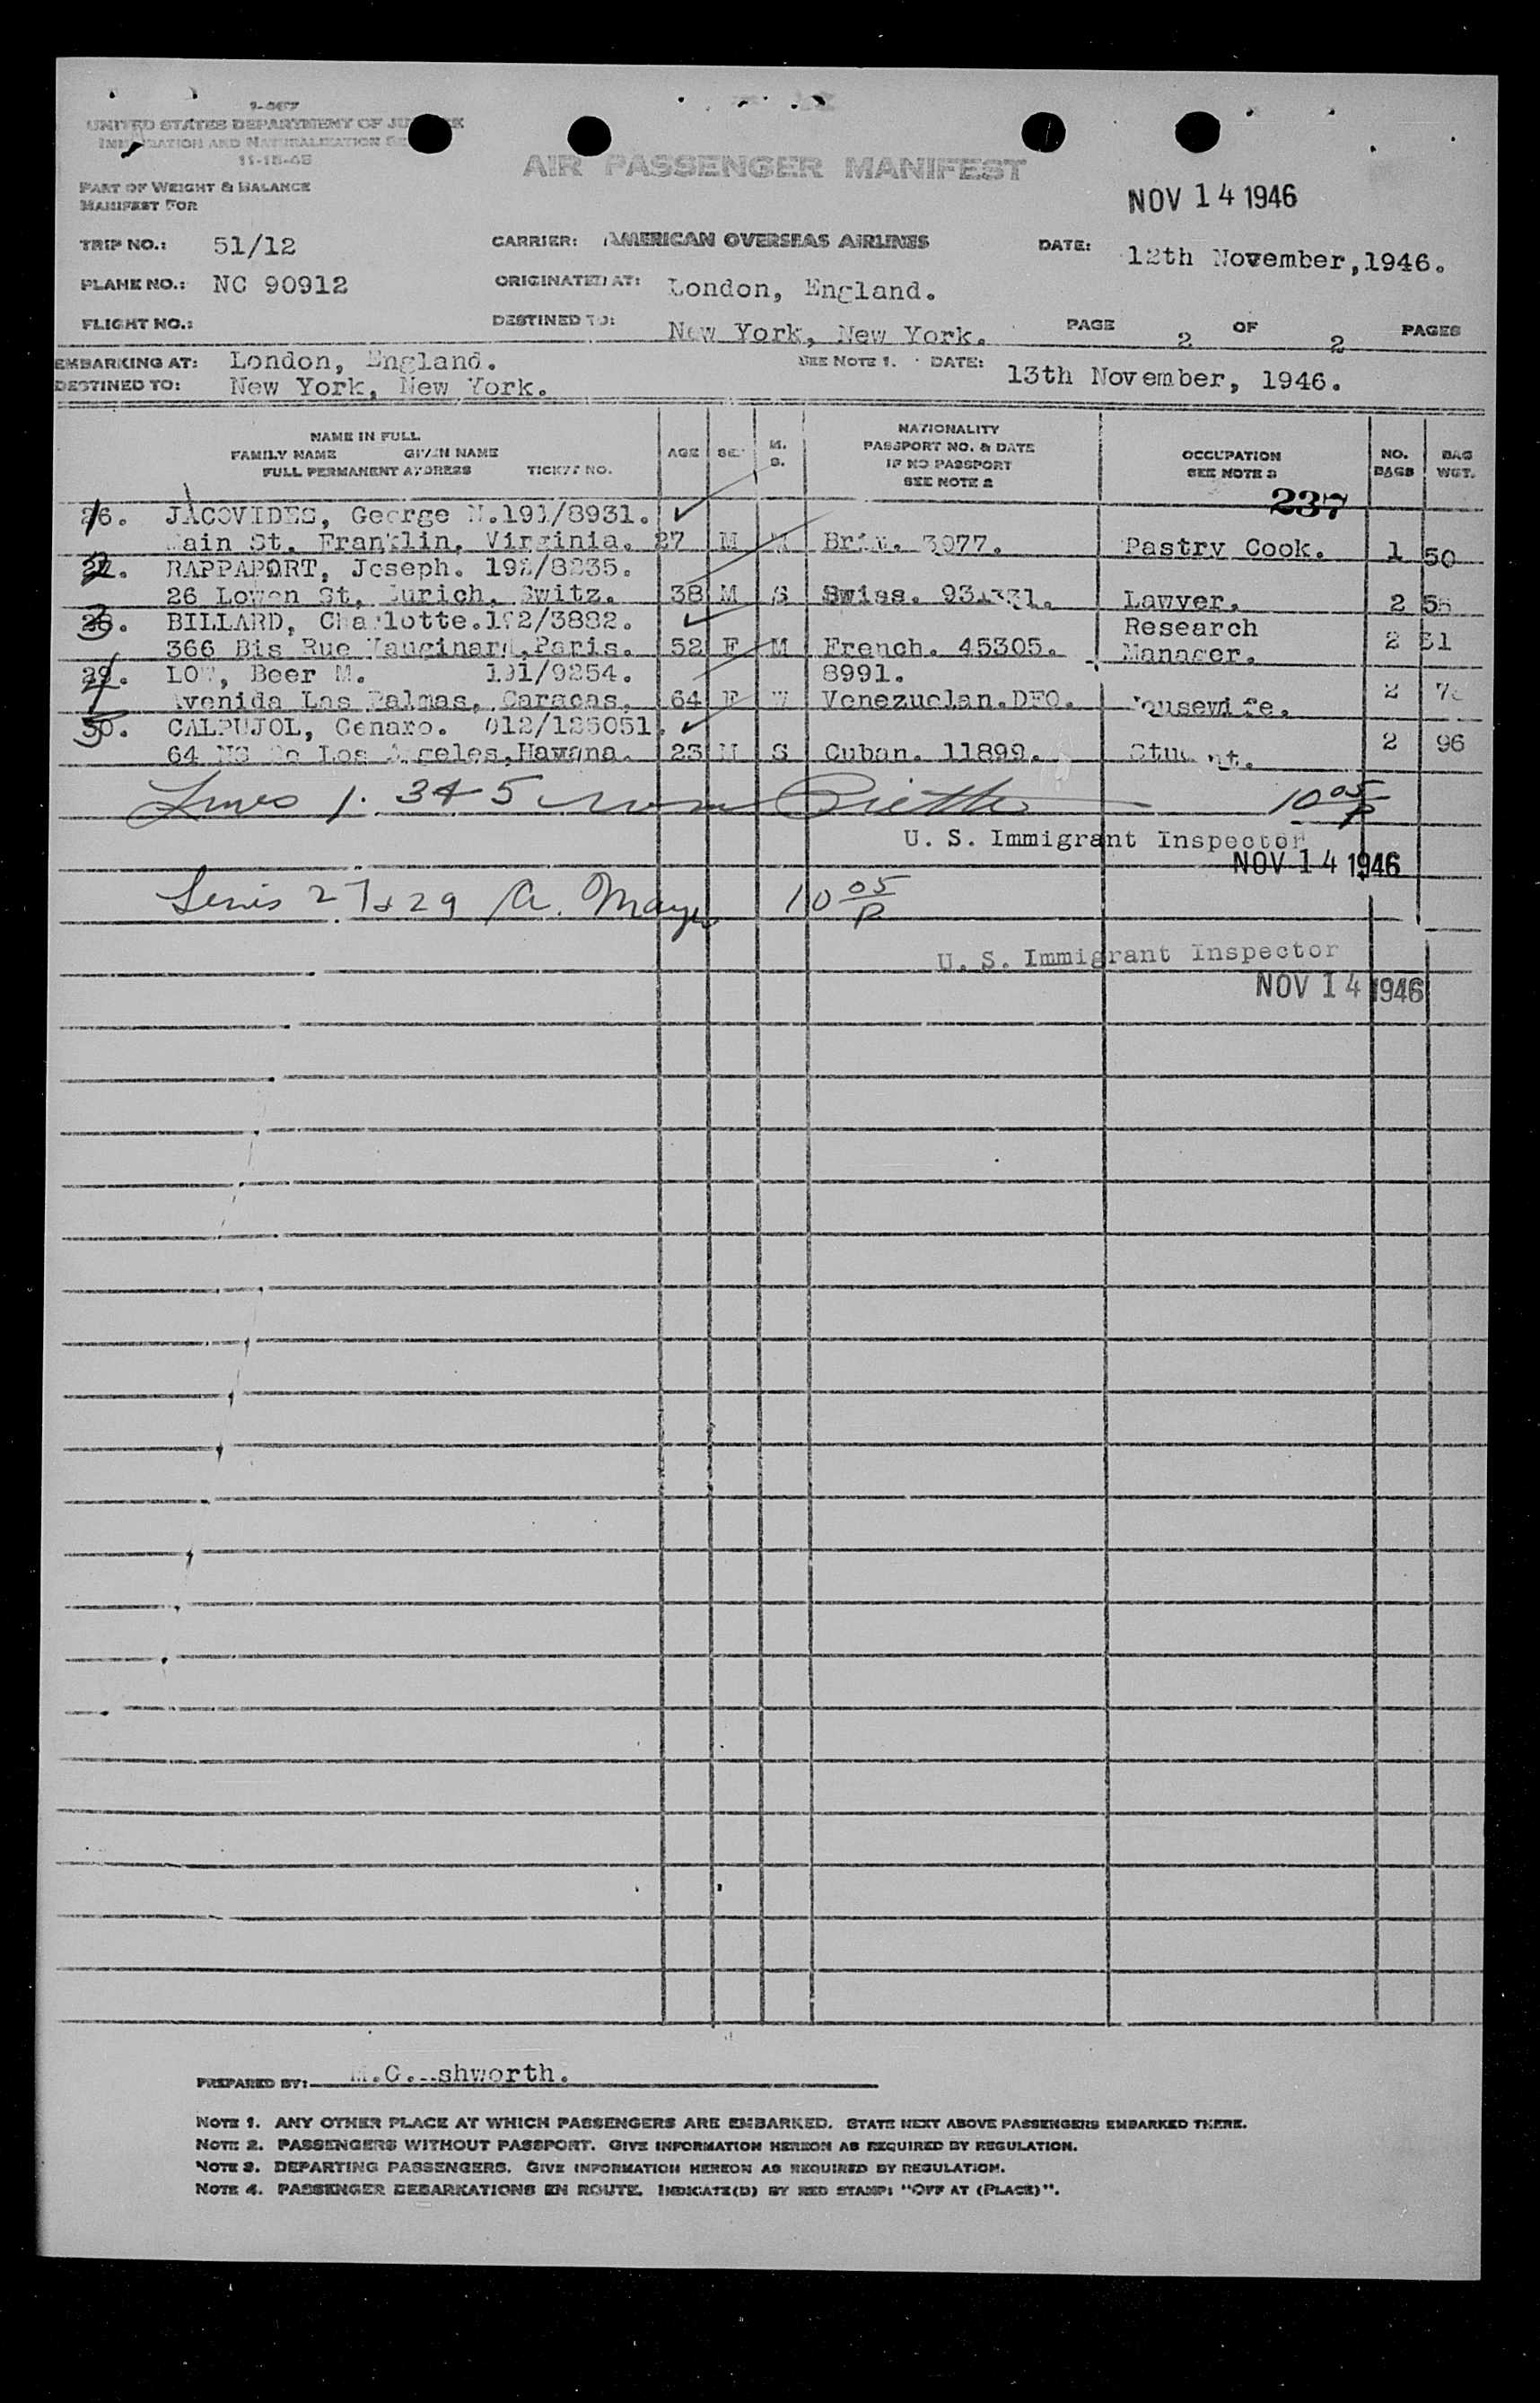 UNITED STATES DEPARTMENT OF
11-15-45
AIR PASSENGER MANIFEST
PART OF WEIGHT & BALANCE
MANIFEST FOR
NOV 14 1946
TRIP NO.: 51/12 CARRIER: AMERICAN OVERSEAS AIRLINES DATE: 12th November, 1946.
PLANE NO.: NC 90912 ORIGINATED AT: London, England.
FLIGHT NO.: DESTINED TO: New York, New York. PAGE 2 OF 2 PAGES
EMBARKING AT: London, England. SEE NOTE 1. DATE: 13th November, 1946.
DESTINED TO: New York, New York.
NAME IN FULL
FAMILY NAME GIVEN NAME
FULL PERMANENT ADDRESS TICKET NO.
AGE SEX M. S.
NATIONALITY
PASSPORT NO. & DATE
IF NO PASSPORT
SEE NOTE 2
OCCUPATION
SEE NOTE 3
NO. BAGS
BAG WGT.
237
26. JACOVIDES, George N. 191/8931.
Main St. Franklin, Virginia. 27 M Brit. 3977. Pastry Cook. 1 50
RAPPAPORT, Joseph. 192/8235.
26 Lowen St, Zurich, Switz. 38 M S Swiss. Lawyer. 2
BILLARD, Charlotte. 192/3882. Research
366 Bis Rue Vauginard, Paris. 52 F M French. 45305. Manager. 2 31
29. LOW, Beer M. 191/9254. 8991.
Avenida Las Palmas, Caracas, 64 F W Venezuelan. Housewife. 2
30. CALPUJOL, Genaro. 012/125051.
64 Los Angeles, Havana. 23 M S Cuban. 11899. Student. 2 96
Lines 1. 3 & 5 10 05 P
U. S. Immigrant Inspector
NOV 14 1946
27 & 29 A. Mayer 10 05 P
U. S. Immigrant Inspector
NOV 14 1946
PREPARED BY: M.G. Ashworth.
NOTE 1. ANY OTHER PLACE AT WHICH PASSENGERS ARE EMBARKED. STATE NEXT ABOVE PASSENGERS EMBARKED THERE.
NOTE 2. PASSENGERS WITHOUT PASSPORT. GIVE INFORMATION HEREON AS REQUIRED BY REGULATION.
NOTE 3. DEPARTING PASSENGERS. GIVE INFORMATION HEREON AS REQUIRED BY REGULATION.
NOTE 4. PASSENGER DEBARKATIONS EN ROUTE. INDICATE(D) BY RED STAMP: "OFF AT (PLACE)".